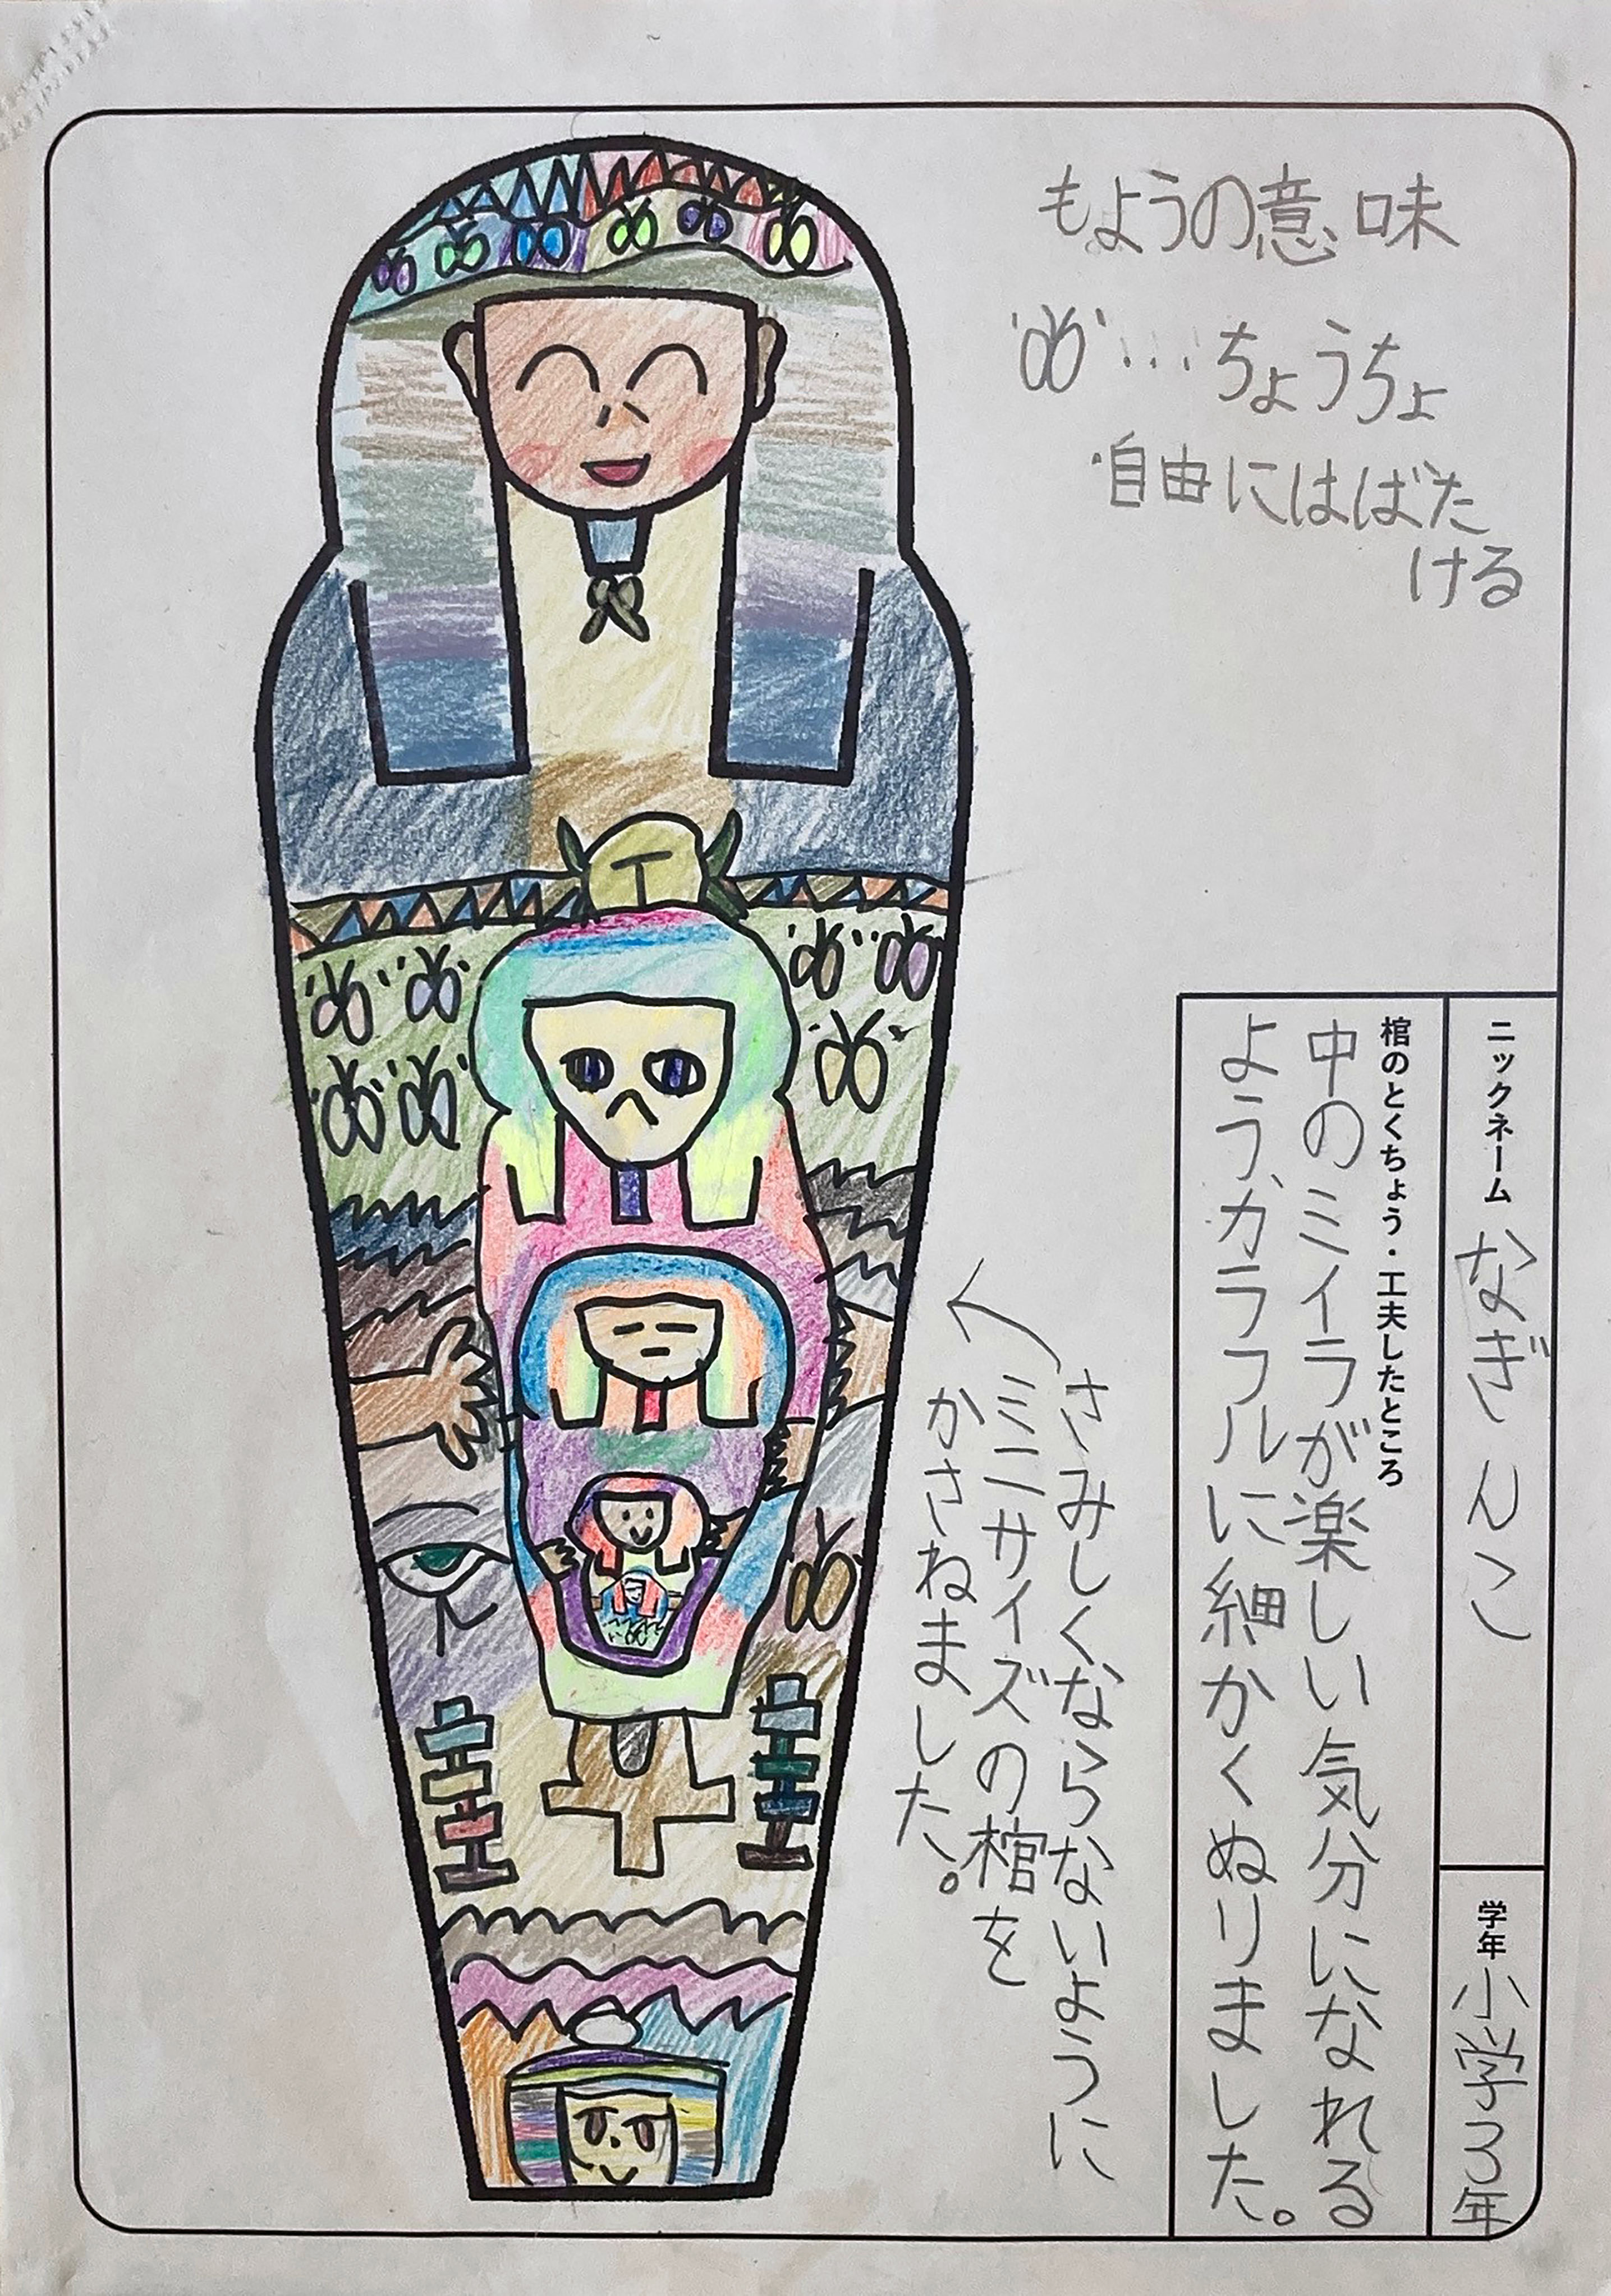 もようの意味
…ちょうちょ
・自由にはばた
ける
ニックネーム なぎんこ
学年 小学3年
棺のとくちょう・工夫したところ
中のミイラが楽しい気分になれる
よう、カラフルに細かくぬりました。
さみしくならないように
ミニサイズの棺を
かさねました。